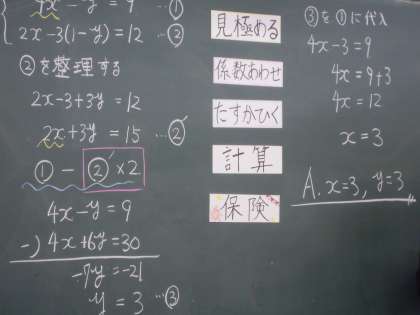 4x-y=9 …①
2x-3(1-y)=12 …②
②を整理する
2x-3+3y=12
2x+3y=15 …②´
①-②´×2
4x-y=9
-)4x+6y=30
-7y=-21
y=3 …③
見極める
係数あわせ
たすかひく
計算
保険
③を①に代入
4x-3=9
4x=9+3
4x=12
x=3
A. x=3, y=3